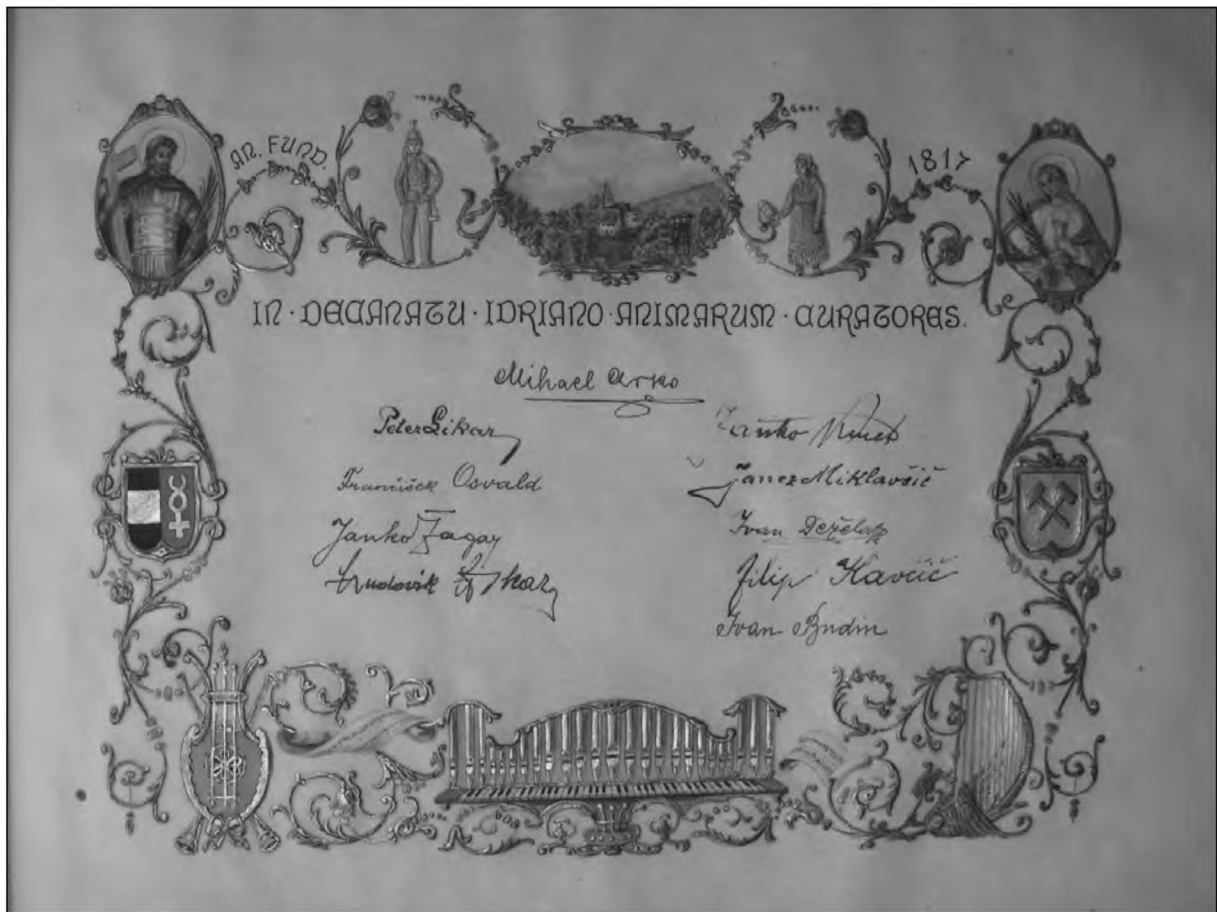 AN. FUND.
1817
IN · DECANATU · IDRIANO · ANIMARUM · CURATORES.
Mihael Arko
Peter Likar
Frančišek Osvald
Janko Žagar
Ludovik
Janko
Janez Miklavčič
Ivan Dežela
Filip Kavčič
Ivan Budin